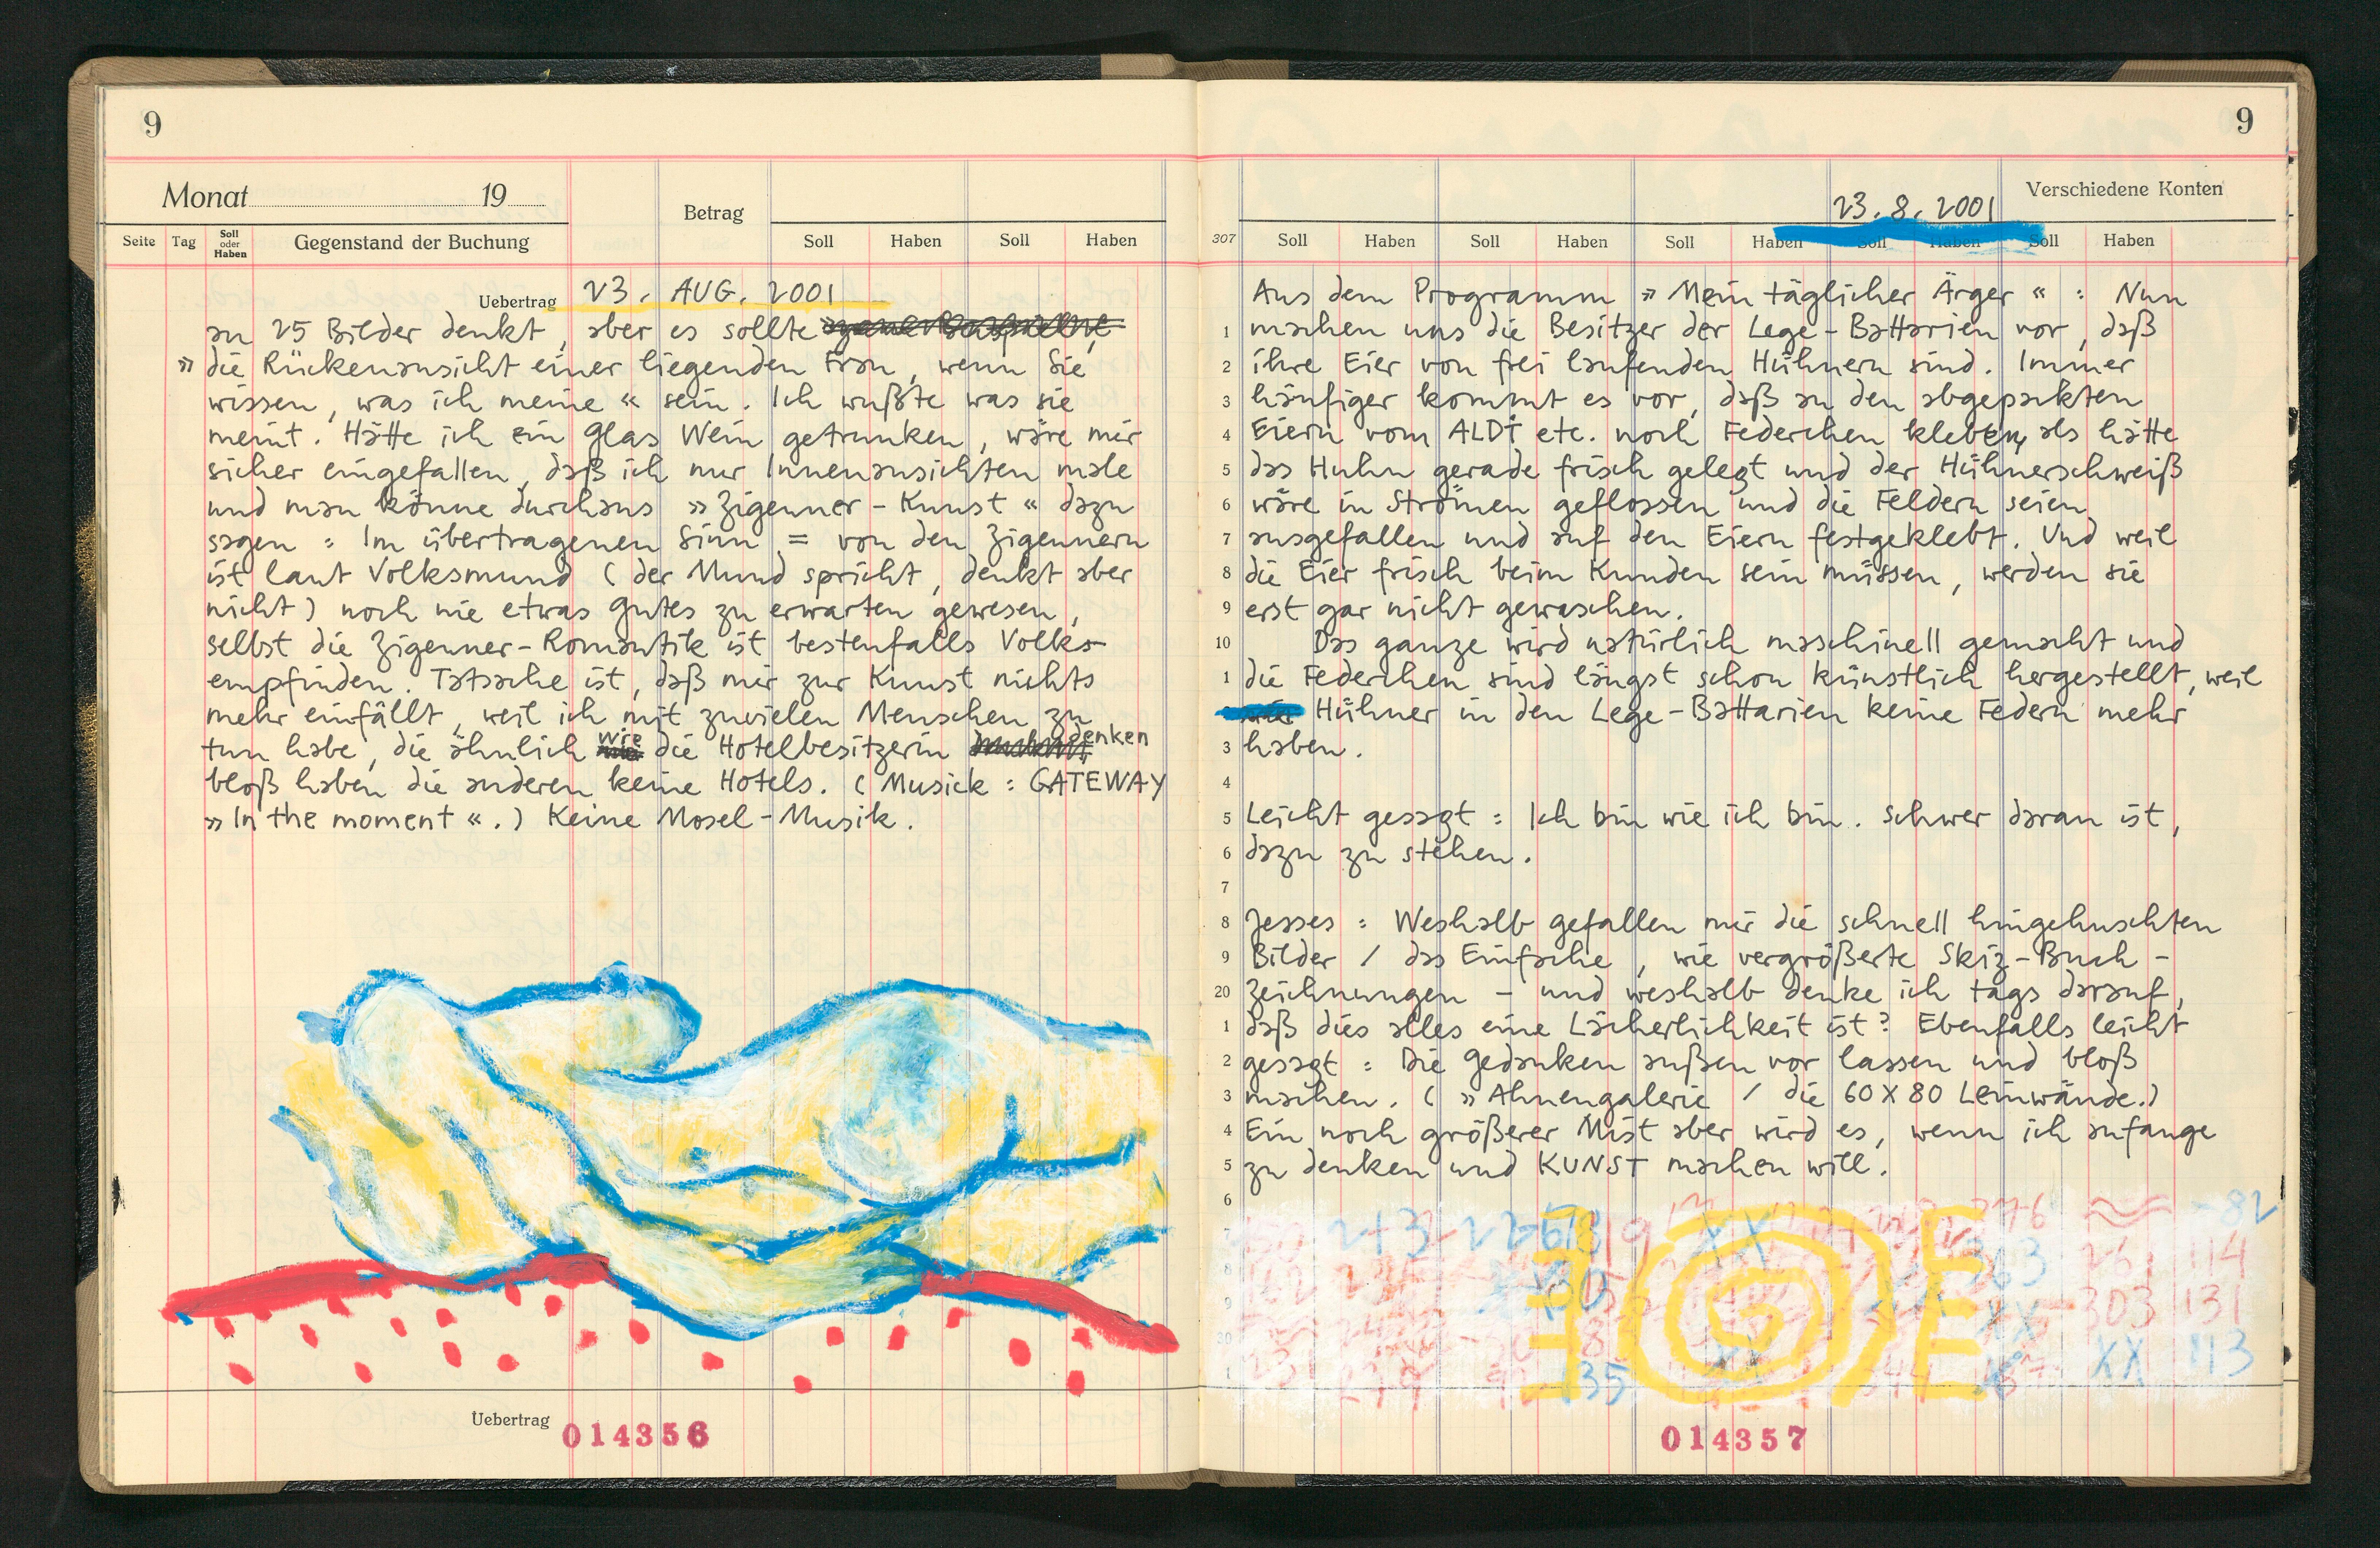 9
Monat 19
Betrag
Seite Tag Soll oder Haben Gegenstand der Buchung Soll Haben Soll Haben
Uebertrag 23. AUG. 2001
an 25 Bilder denkt, aber es sollte
» die Rückenansicht einer liegenden Frau, wenn Sie
wissen, was ich meine « sein. Ich wußte was sie
meint. Hätte ich ein Glas Wein getrunken, wäre mir
sicher eingefallen, daß ich nur Innenansichten male
und man könne durchaus » Zigeuner-Kunst « dazu
sagen : Im übertragenen Sinn = von den Zigeunern
ist laut Volksmund ( der Mund spricht, denkt aber
nicht ) noch nie etwas Gutes zu erwarten gewesen,
selbst die Zigeuner-Romantik ist bestenfalls Volks-
empfinden. Tatsache ist, daß mir zur Kunst nichts
mehr einfällt, weil ich mit zuvielen Menschen zu
tun habe, die ähnlich wie die Hotelbesitzerin denken
bloß haben die anderen keine Hotels. ( Musick : GATEWAY
» In the moment « . ) Keine Mosel-Musik.
Uebertrag 014356
9
23. 8. 2001 Verschiedene Konten
307 Soll Haben Soll Haben Soll Haben Soll Haben Soll Haben
Aus dem Programm » Mein täglicher Ärger « : Nun
1 machen uns die Besitzer der Lege-Battarien vor, daß
2 ihre Eier von frei laufenden Hühnern sind. Immer
3 häufiger kommt es vor, daß an den abgepackten
4 Eiern vom ALDI etc. noch Federchen kleben, als hätte
5 das Huhn gerade frisch gelegt und der Hühnerschweiß
6 wäre in Strömen geflossen und die Feldern seien
7 ausgefallen und auf den Eiern festgeklebt. Und weil
8 die Eier frisch beim Kunden sein müssen, werden sie
9 erst gar nicht gewaschen.
10 Das ganze wird natürlich maschinell gemacht und
1 die Federchen sind längst schon künstlich hergestellt, weil
Hühner in den Lege-Battarien keine Federn mehr
3 haben.
4
5 Leicht gesagt : Ich bin wie ich bin. Schwer daran ist,
6 dazu zu stehen.
7
8 Jesses : Weshalb gefallen mir die schnell hingehuschten
9 Bilder / das Einfache, wie vergrößerte Skiz-Buch-
20 Zeichnungen - und weshalb denke ich tags darauf,
1 daß dies alles eine Lächerlichkeit ist? Ebenfalls leicht
2 gesagt : Die Gedanken außen vor lassen und bloß
3 machen. ( » Ahnengalerie / die 60 X 80 Leinwände. )
4 Ein noch größerer Mist aber wird es, wenn ich anfange
5 zu denken und KUNST machen will.
6
376 -82
363 261 114
303 131
XX 113
135
014357